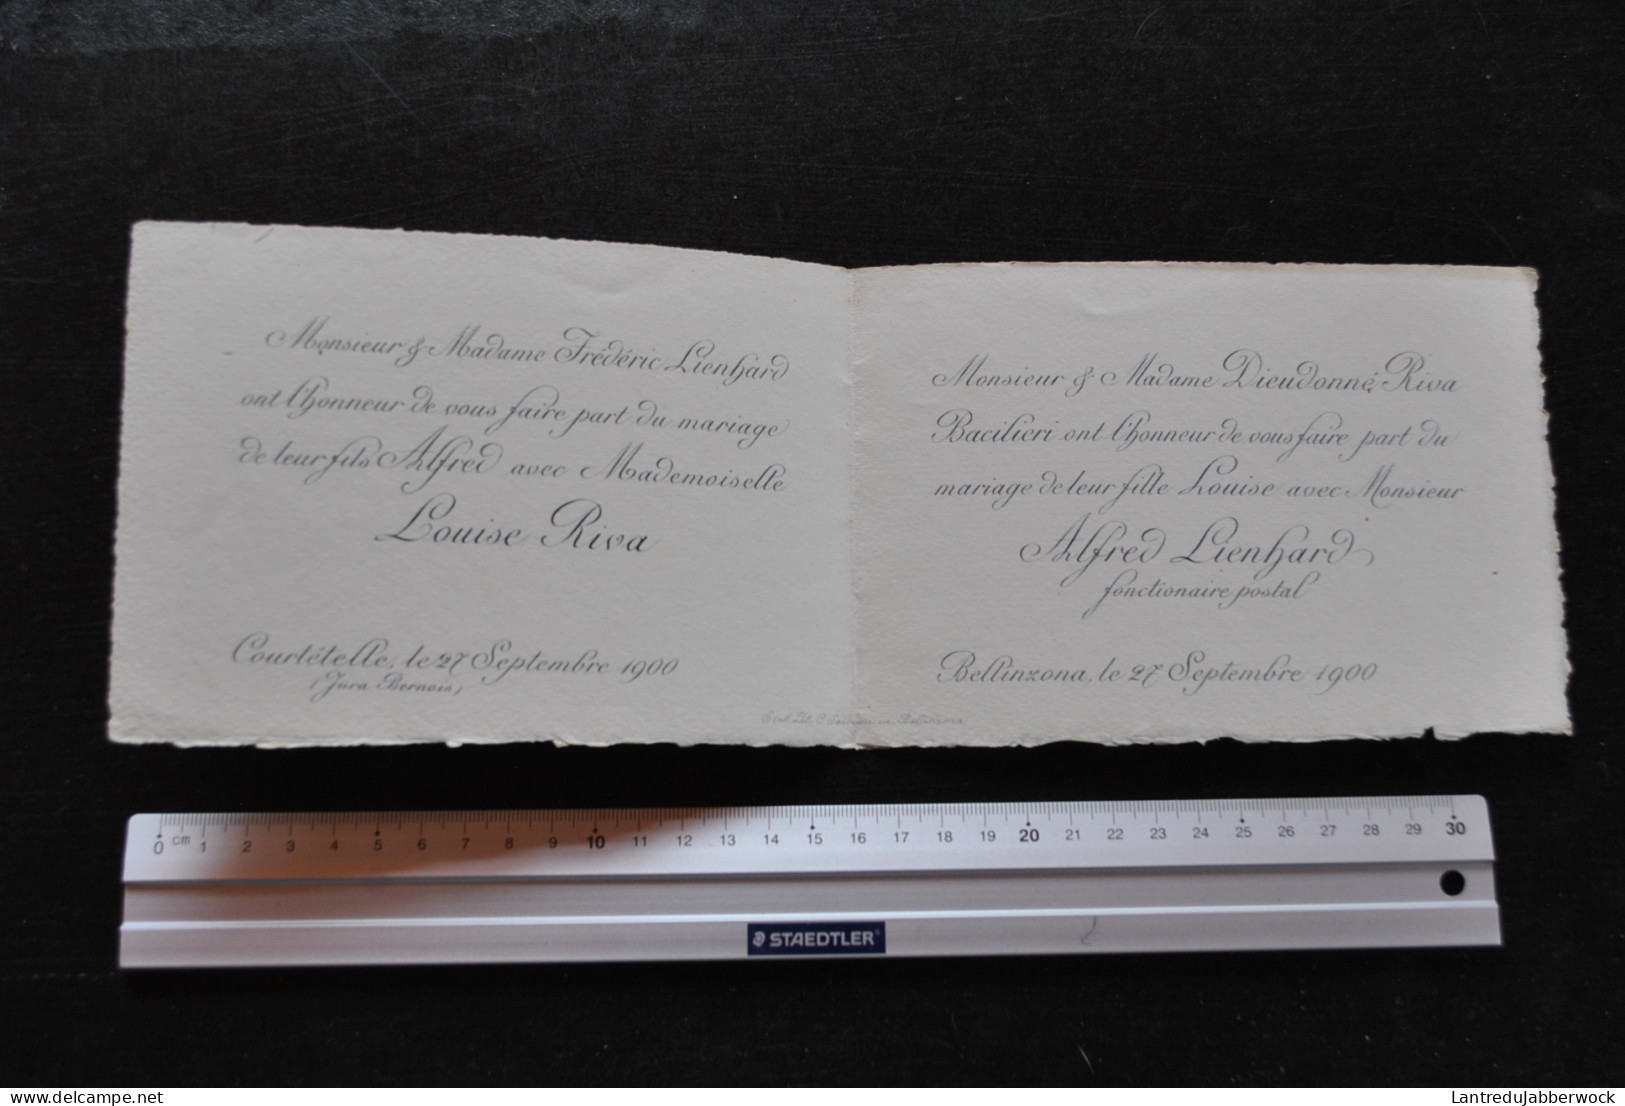 Monsieur & Madame Frédéric Lienhard
ont l'honneur de vous faire part du mariage
de leur fils Alfred avec Mademoiselle
Louise Riva
Courtételle, le 27 Septembre 1900
(Jura Bernois)
Monsieur & Madame Dieudonné Riva
Bacilieri ont l'honneur de vous faire part du
mariage de leur fille Louise avec Monsieur
Alfred Lienhard
fonctionaire postal
Bellinzona, le 27 Septembre 1900
Bellinzona
0 cm 1 2 3 4 5 6 7 8 9 10 11 12 13 14 15 16 17 18 19 20 21 22 23 24 25 26 27 28 29 30
STAEDTLER
delcampe.net
LantreduJabberwock